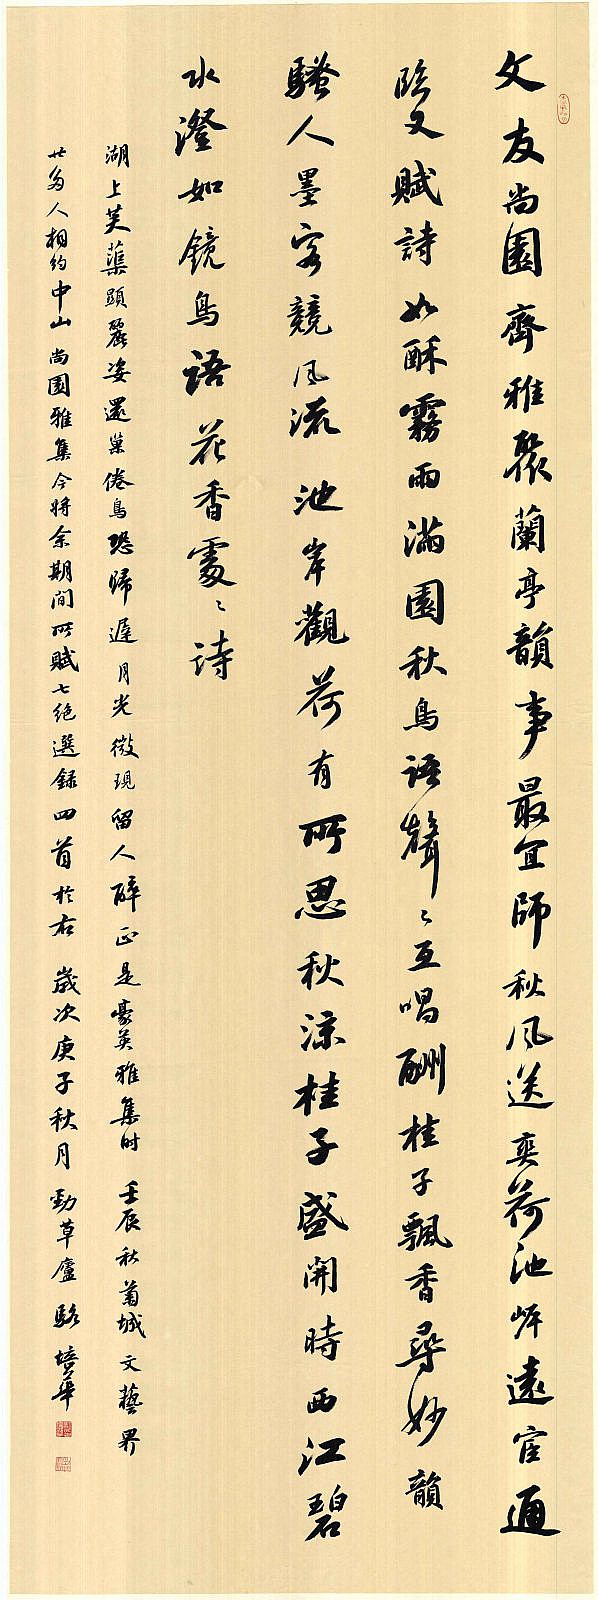 文友尚園齊雅聚蘭亭韻事最宜師秋风送爽荷池岸遠宦通
臨又賦詩如酥霧雨滿園秋鳥語聲〻互唱酬桂子飄香尋妙韻
騷人墨客競风流池岸觀荷有所思秋涼桂子盛開時西江碧
水澄如鏡鳥語花香處〻詩
湖上芙蕖顯麗姿還巢倦鳥恐歸遲月光微現留人醉正是豪英雅集时壬辰秋菊城文藝界
廿多人相約中山尚園雅集今將余期間所賦七绝選録四首於右歲次庚子秋月勁草廬駱培華